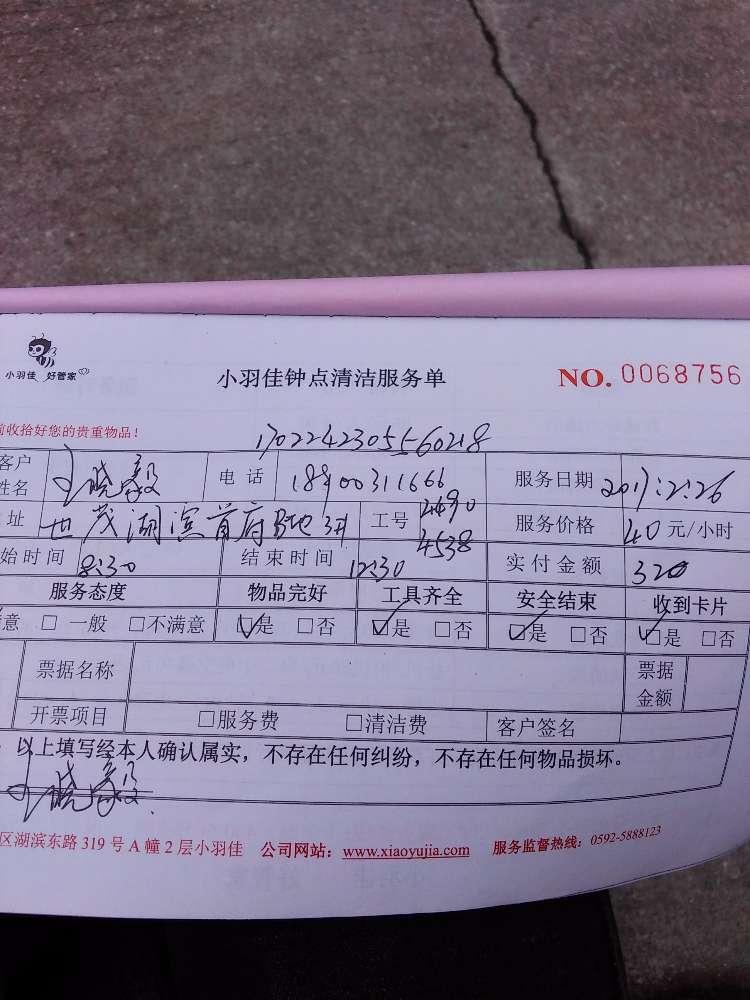 小羽佳 好管家
小羽佳钟点清洁服务单
NO. 0068756
前收拾好您的贵重物品!
17022423055560218
客户姓名 晓毅 电话 18900311666 服务日期 2017.2.26
址 世茂湖滨首府B地 工号 2490 4538 服务价格 40 元/小时
始时间 8:30 结束时间 12:30 实付金额 320
服务态度 物品完好 工具齐全 安全结束 收到卡片
意 □ 一般 □不满意 ☑是 □否 ☑是 □否 ☑是 □否 ☑是 □否
票据名称 票据金额
开票项目 □服务费 □清洁费 客户签名
以上填写经本人确认属实，不存在任何纠纷，不存在任何物品损坏。
晓毅
区湖滨东路 319 号 A 幢 2 层小羽佳 公司网站：www.xiaoyujia.com 服务监督热线：0592-5888123